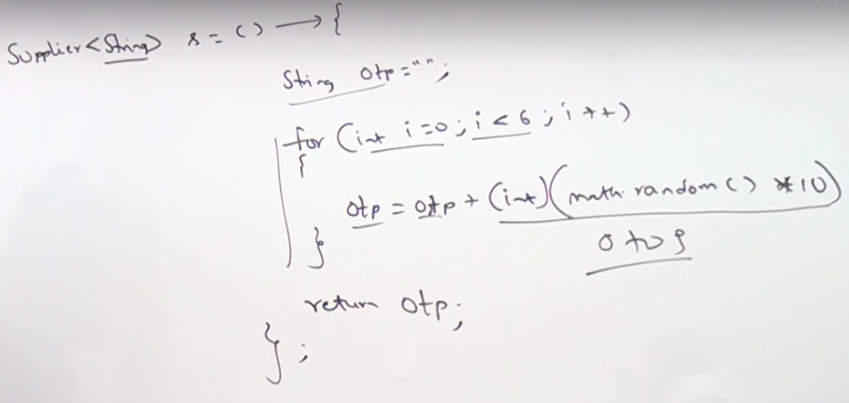 Supplier<String> s = () → {
String otp = "";
for (int i=0; i < 6; i++)
{
otp = otp + (int)(math.random() * 10)
}
0 to 9
return otp;
};